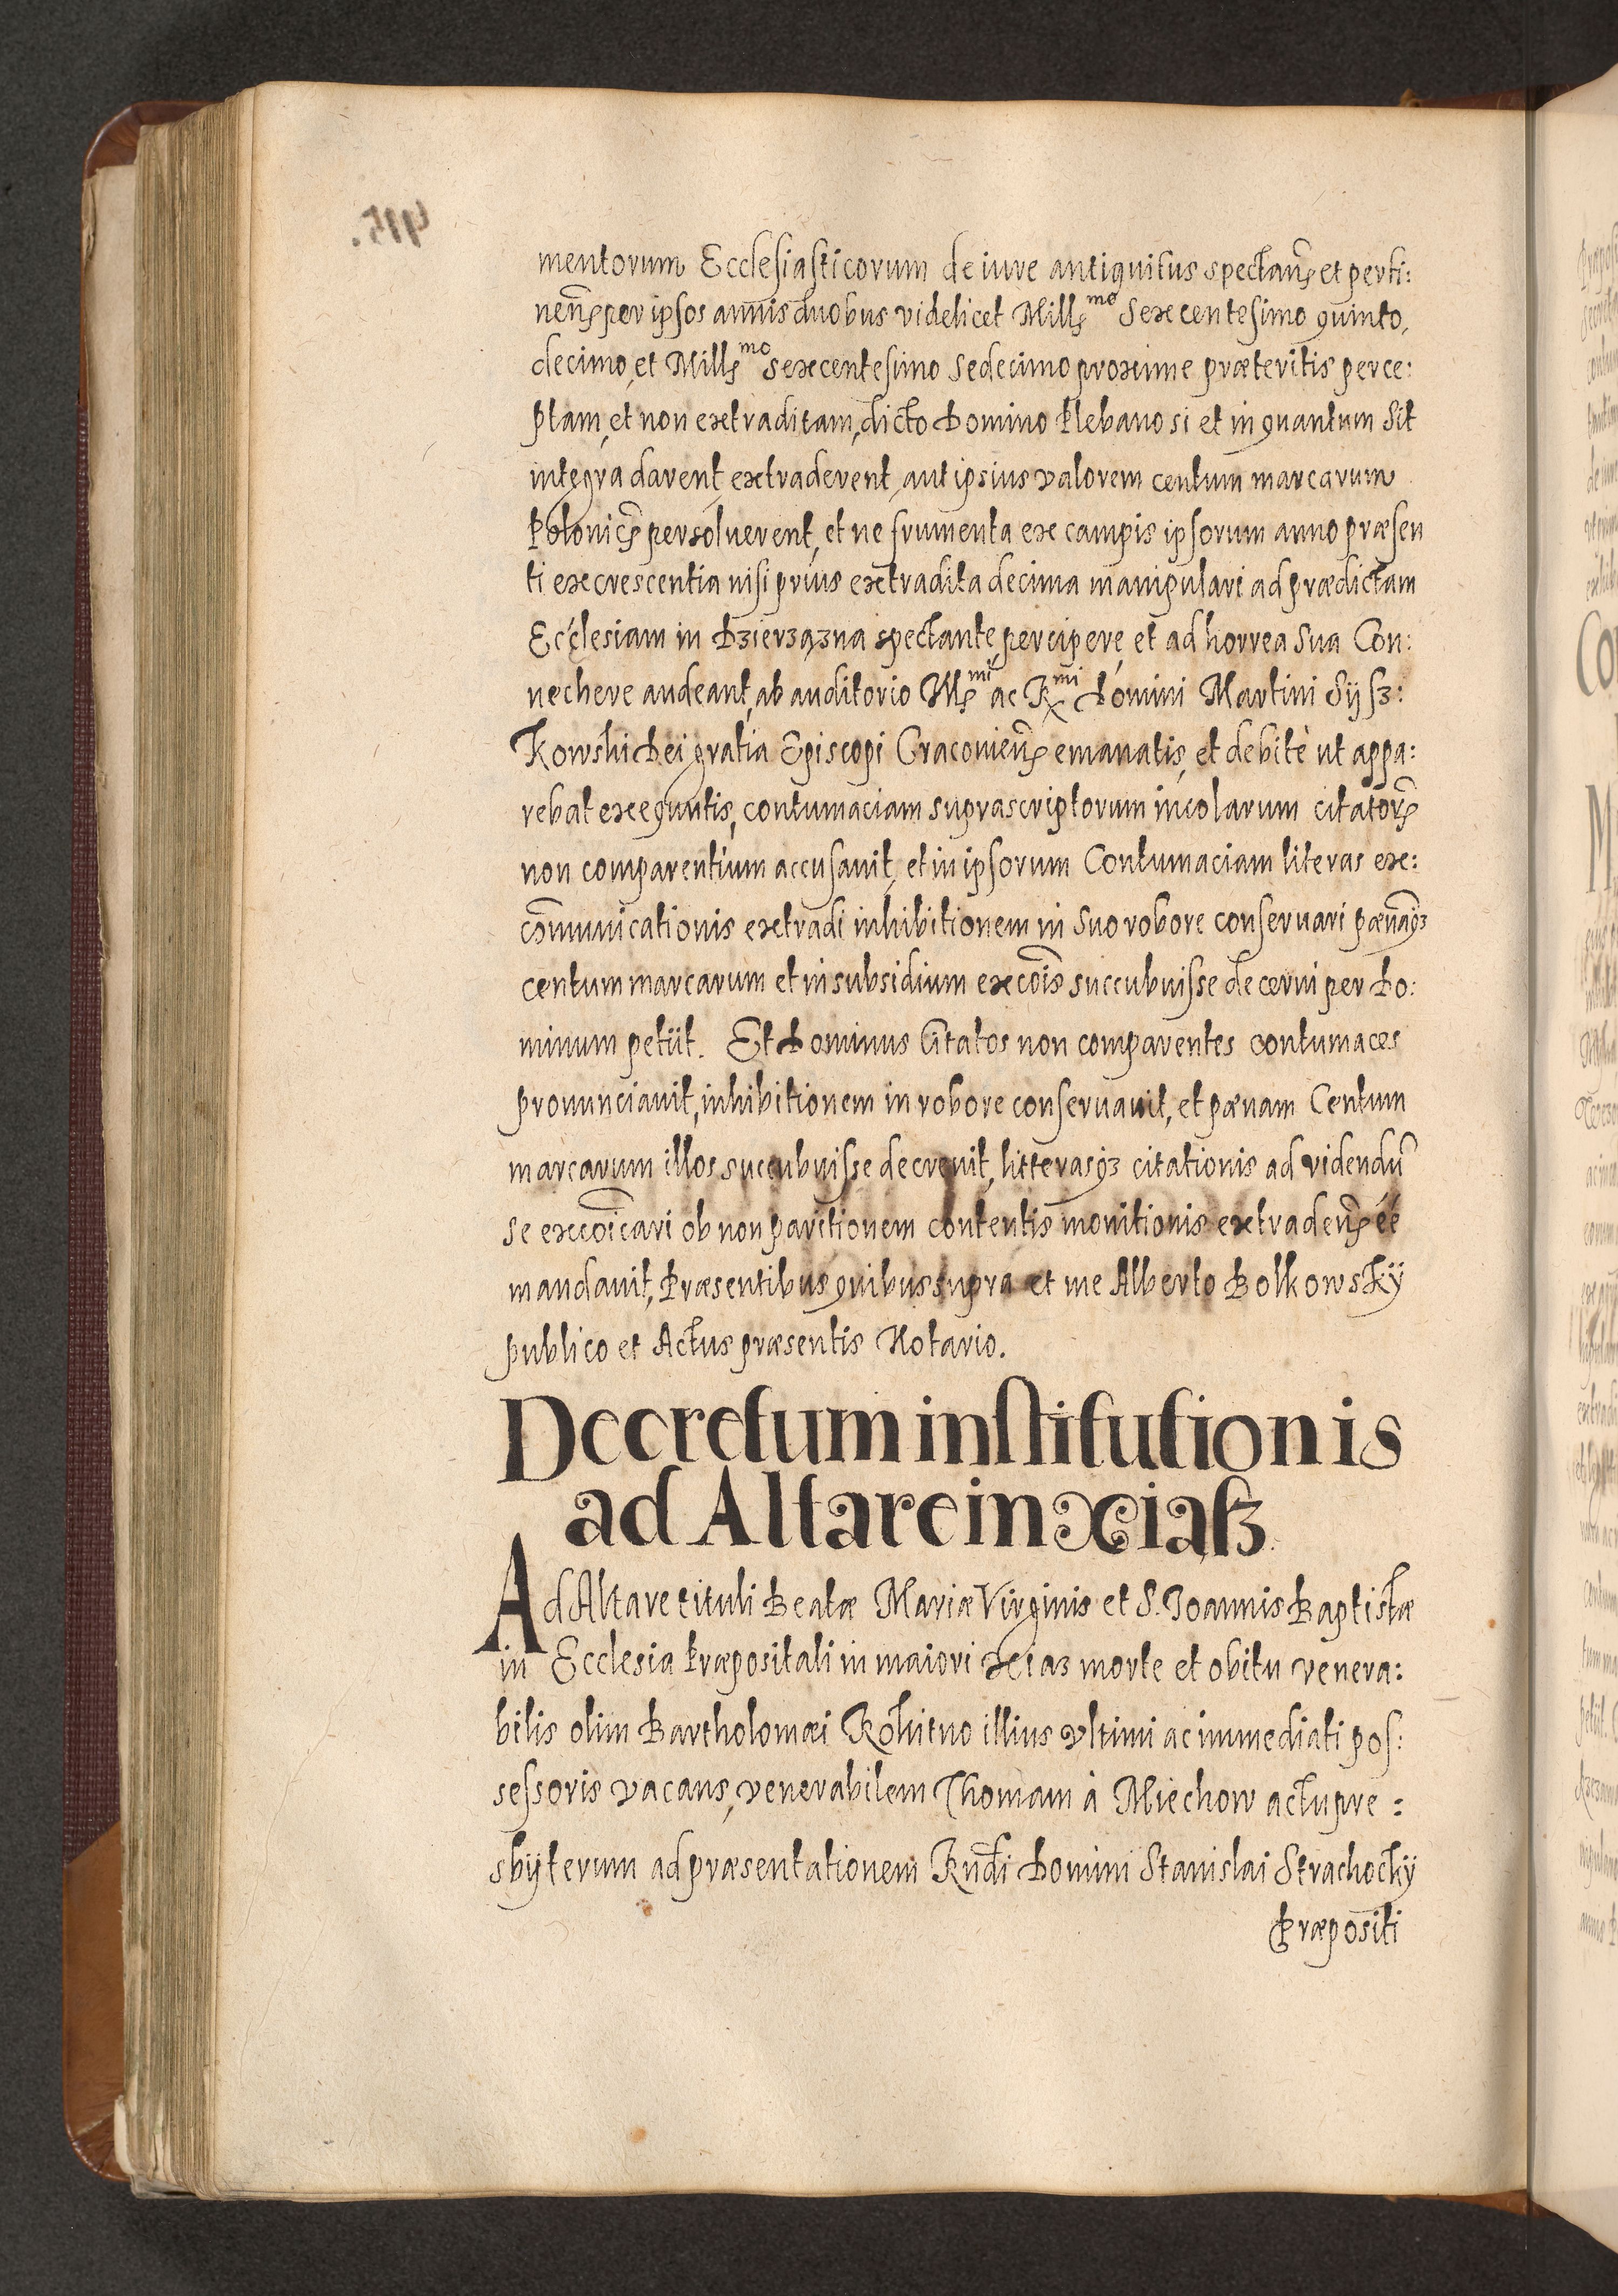 mentorum Ecclesiasticorum de iure antiquitus spectanȩ et perti:
nenȩ per ipsos annis duobus videlicet Millȩmo Sexcentesimo quinto,
decimo, et Millȩmo sexcentesimo Sedecimo proxime præteritis perce:
ptam, et non extraditam, dicto Domino Plebano si et in quantum Sit
integra darent, extraderent, aut ipsius valorem centum marcarum
Polonicȩ persoluerent, et ne frumenta ex campis ipsorum anno præsen
ti excrescentia nisi prius extradita decima manipulari ad prædictam
Ecclesiam in Dzierzązna spectante, percipere, et ad horrea Sua Con:
nechere audeant, ab auditorio Illmi ac Rmi Domini Martini Sÿsz:
Kowski Dei gratia Episcopi Cracovienȩ emanatis, et debitè ut appa:
rebat exequutis, contumaciam suprascriptorum incolarum citatorȩ
non comparentium accusauit, et in ipsorum Contumaciam literas ex:
com̃unicationis extradi inhibitionem in Suo robore conseruari pœnamqȝ
centum marcarum et in subsidium excõis succubuisse decerni per Do:
minum petiit. Et Dominus Citatos non comparentes contumaces
pronunciauit, inhibitionem in robore conseruauit, et pœnam Centum
marcarum illos succubuisse decreuit, litterasqȝ citationis ad videndũ
se excõicari ob non paritionem contentis monitionis extradenȩ éé
mandauit, Præsentibus quibus supra et me Alberto Bolkowskÿ
publico et Actus præsentis Notario.
Decretum institutionis
ad Altare in Xiąsz
Ad Altare tituli Beatæ Mariæ Virginis et S. Joannis Baptistæ
in Ecclesia Præpositali in maiori Xiąz morte et obitu venera:
bilis olim Bartholomæi Rokitno illius vltimi ac immediati pos:
sessoris vacans, venerabilem Thomam à Miechow actu pre:
sbÿterum ad præsentationem Rñdi Domini Stanislai Strachockÿ
Præpositi